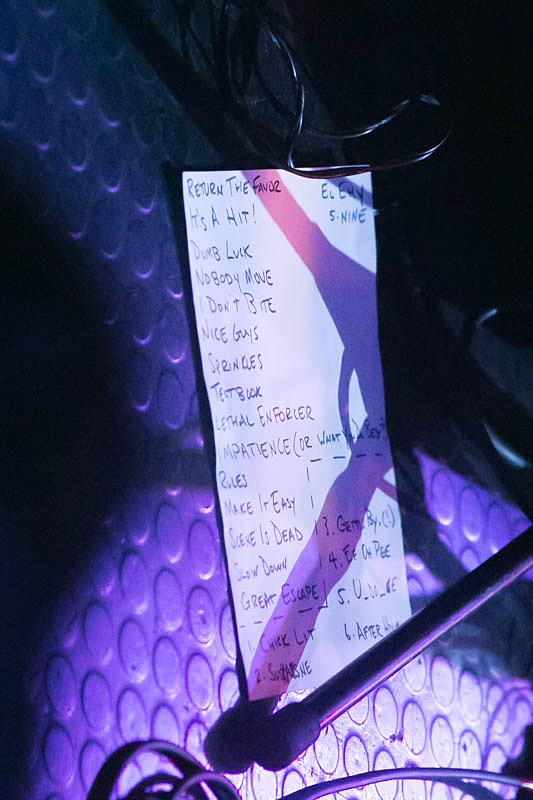 RETURN THE FAVOR
EL EMY
IT'S A HIT!
5-NINE
DUMB LUCK
NOBODY MOVE
I DON'T BITE
NICE GUYS
SPRINKLES
TEXTBOOK
LETHAL ENFORCER
IMPATIENCE (OR WHAT
RULES
MAKE IT EASY
SCENE IS DEAD
SLOW DOWN
GREAT ESCAPE
1. CHICK LIT
2.
3. GETTIN BY. (!)
4. EE OH PEE
5. U_W_ME
6. AFTER